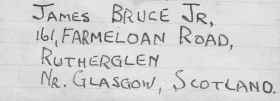 JAMES BRUCE JR,
161, FARMELOAN ROAD,
RUTHERGLEN
NR. GLASGOW, SCOTLAND.